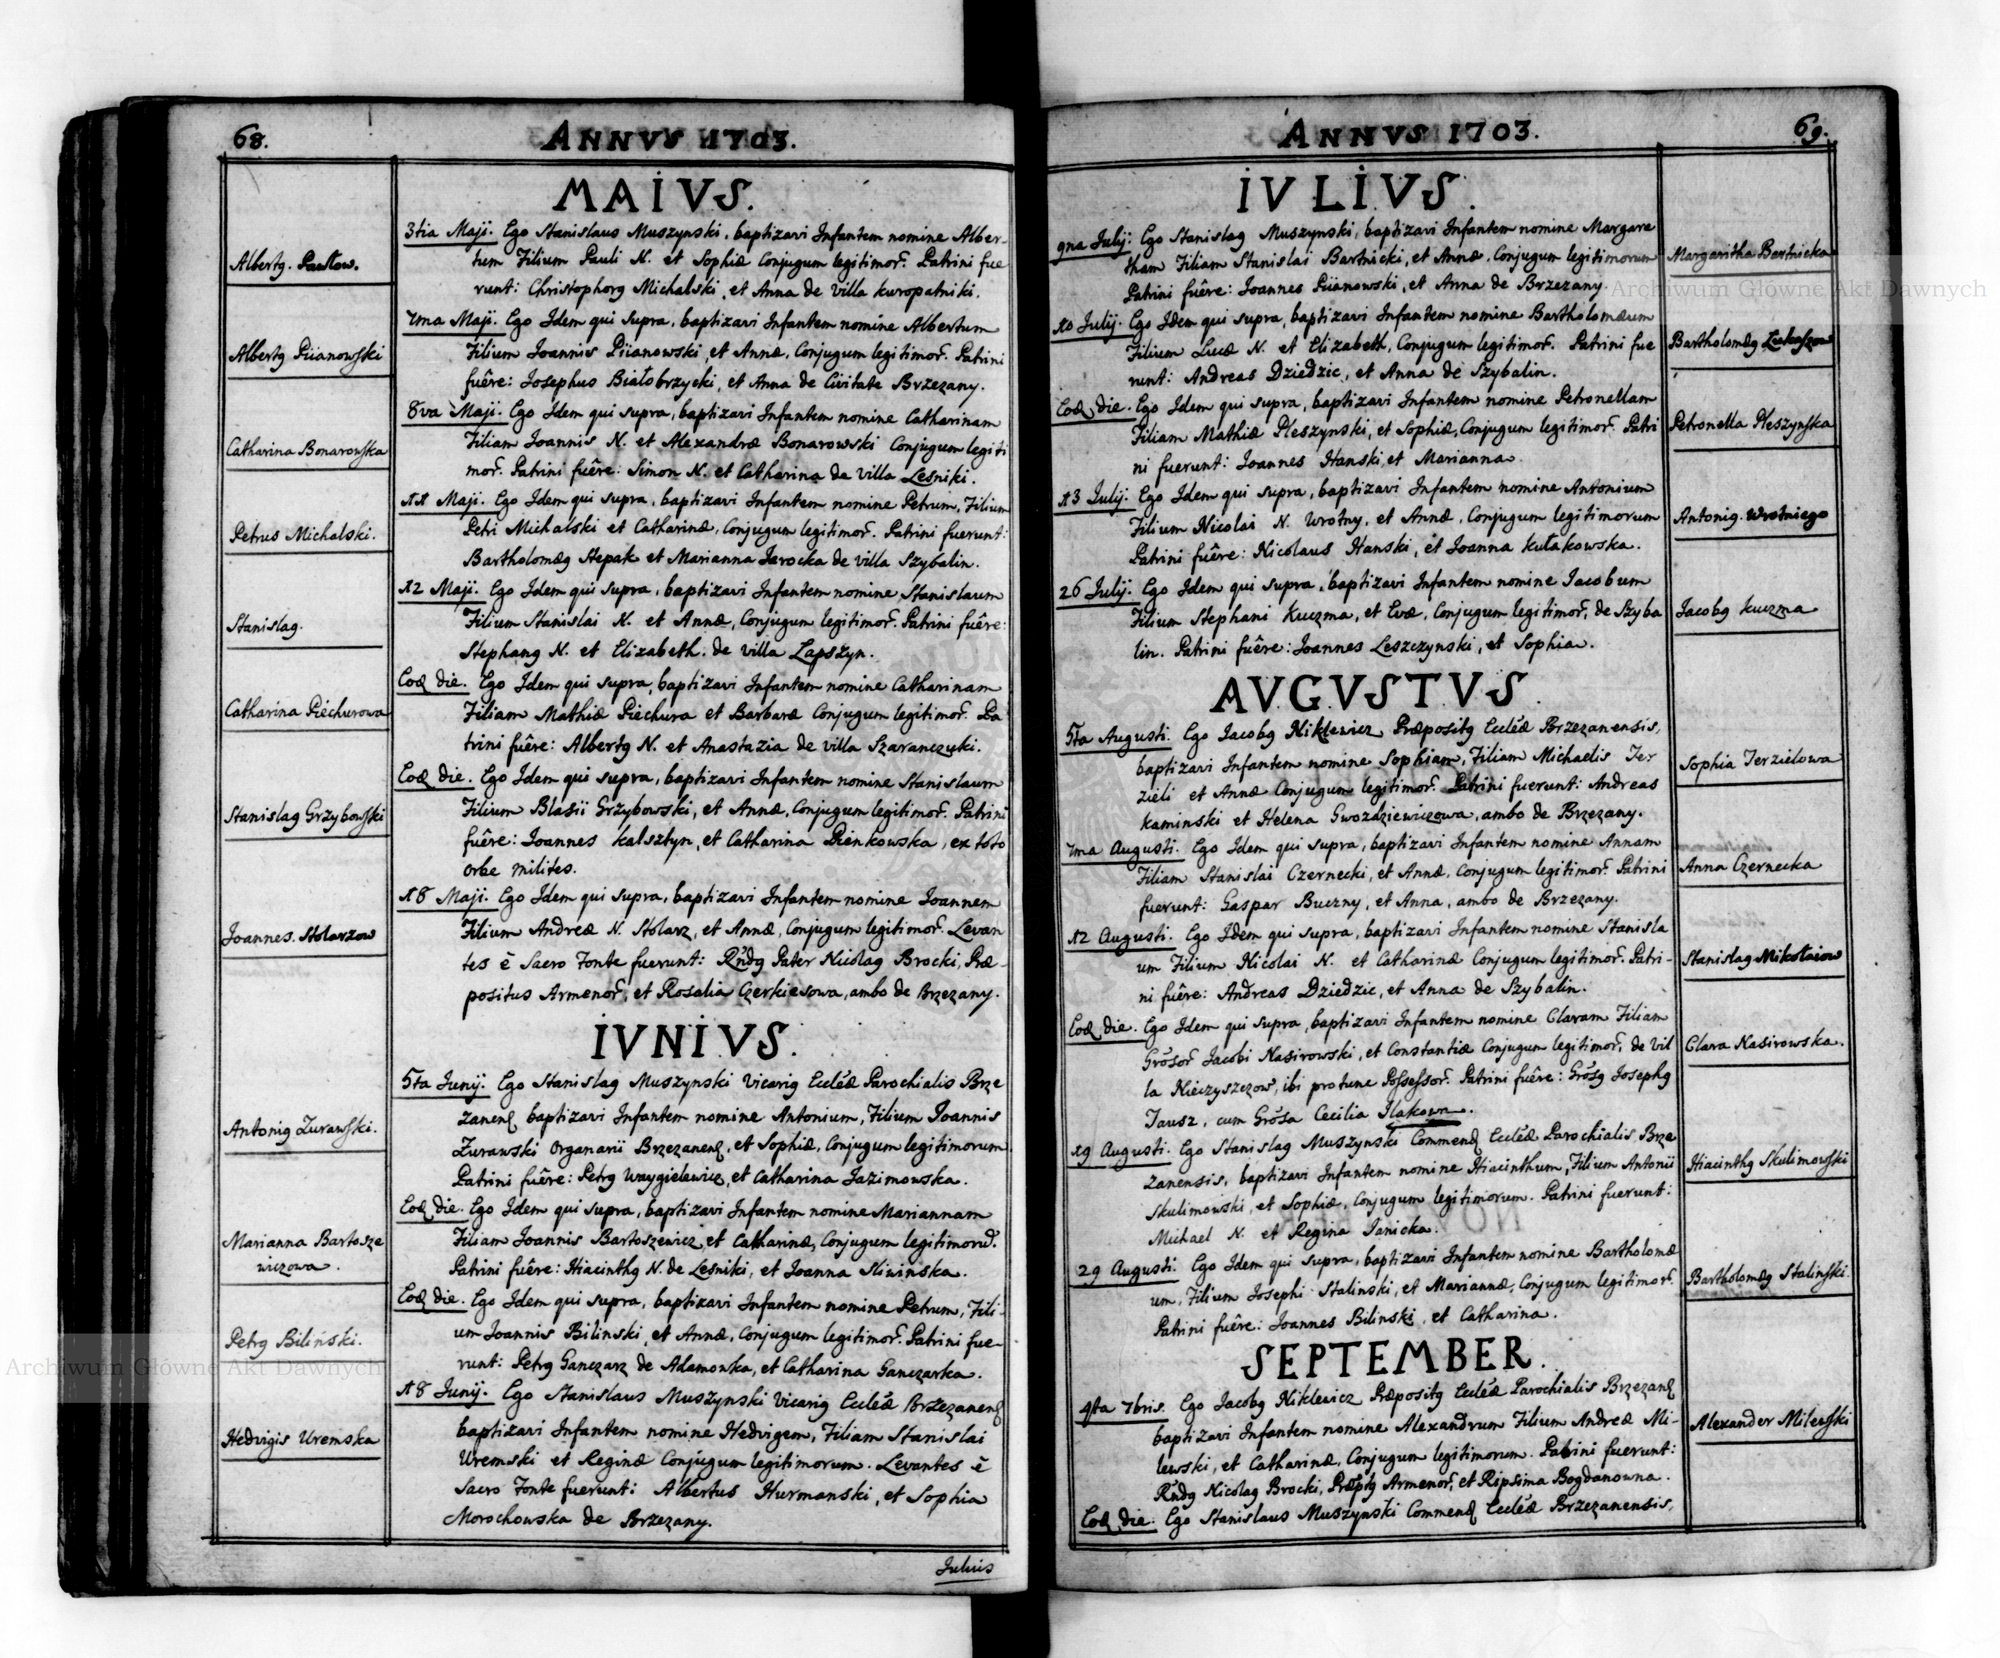 68.
ANNVS 1703.
MAIVS.
Albertg. Pawłow.
3tia Maji. Ego Stanislaus Muszynski, baptizavi Infantem nomine Alber-
tum Filium Pauli N. et Sophiæ Conjugum legitimor. Patrini fue
runt: Christophorg Michalski, et Anna de villa Kuropatniki.
Albertg Piianowski
7ma Maji. Ego Idem qui supra, baptizavi Infantem nomine Albertum
Filium Joannis Piianowski, et Annæ, Conjugum legitimor. Patrini
fuêre: Josephus Białobrzycki, et Anna de Civitate Brzezany.
Catharina Bonarowska
8va Maji. Ego Idem qui supra, baptizavi Infantem nomine Catharinam
Filiam Joannis N. et Alexandræ Bonarowski Conjugum legiti
mor. Patrini fuêre: Simon N. et Catharina de villa Lesniki.
Petrus Michalski.
11 Maji. Ego Idem qui supra, baptizavi Infantem nomine Petrum, Filium
Petri Michalski et Catharinæ, Conjugum legitimor. Patrini fuerunt:
Bartholomæg Stepak et Marianna Jarocka de villa Szybalin.
Stanislag.
12 Maji. Ego Idem qui supra, baptizavi Infantem nomine Stanislaum
Filium Stanislai N. et Annæ, Conjugum legitimor. Patrini fuêre:
Stephang N. et Elizabeth. de villa Lapszyn.
Catharina Piechurowa
Eod die. Ego Idem qui supra, baptizavi Infantem nomine Catharinam
Filiam Mathiæ Piechura et Barbaræ Conjugum legitimor. Pa
trini fuêre: Albertg N. et Anastazia de villa Szaranczuki.
Stanislag Grzybowski
Eod die. Ego Idem qui supra, baptizavi Infantem nomine Stanislaum
Filium Blasii Grzybowski, et Annæ, Conjugum legitimor. Patrini
fuêre: Joannes Kalsztyn, et Catharina Pienkowska, ex toto
orbe milites.
Joannes. Stolarzow
18 Maji. Ego Idem qui supra, baptizavi Infantem nomine Joannem
Filium Andreæ N. Stolarz, et Annæ, Conjugum legitimor. Levan
tes è Sacro Fonte fuerunt: Rndg Pater Nicolag Brocki, Præ-
positus Armenor, et Rosalia Czerkiesowa, ambo de Brzezany.
IVNIVS.
Antonig Zurawski.
5ta Junij. Ego Stanislag Muszynski Vicarig Eccléæ Parochialis Brze
zanens baptizavi Infantem nomine Antonium, Filium Joannis
Zurawski Organarii Brzezanens, et Sophiæ, Conjugum legitimorum
Patrini fuêre: Petrg Waygielewicz, et Catharina Jazimowska.
Marianna Bartosze
wiczowa.
Eod die. Ego Idem qui supra, baptizavi Infantem nomine Mariannam
Filiam Joannis Bartoszewicz et Catharinæ, Conjugum legitimoru.
Patrini fuêre: Hiacinthg N. de Lesniki, et Joanna Sliwinska.
Petrg Biliński.
Eod die. Ego Idem qui supra, baptizavi Infantem nomine Petrum, Fili-
um Joannis Bilinski, et Annæ, Conjugum legitimor. Patrini fue-
runt: Petrg Ganczarz de Adamowka, et Catharina Ganczarka.
Hedvigis Uremska
18 Junij. Ego Stanislaus Muszynski Vicarig Eccléæ Brzezanens
baptizavi Infantem nomine Hedvigem, Filiam Stanislai
Uremski et Reginæ Conjugum legitimorum. Levantes è
Sacro Fonte fuerunt: Albertus Hurmanski, et Sophia
Morochowska de Brzezany.
Julius
69.
ANNVS 1703.
IVLIVS.
9na Julij. Ego Stanislag Muszynski, baptizavi Infantem nomine Margare
tham Filiam Stanislai Bartnicki, et Annæ, Conjugum legitimorum
Patrini fuêre: Joannes Piianowski, et Anna de Brzezany.
Margaritha Bartnicka
10 Julij. Ego Idem qui supra, baptizavi Infantem nomine Bartholomæum
Filium Lucæ N. et Elizabeth, Conjugum legitimor. Patrini fue
runt: Andreas Dziedzic, et Anna de Szybalin.
Bartholomæg Lukaszow
Eod die. Ego Idem qui supra, baptizavi Infantem nomine Petronellam
Filiam Mathiæ Pleszynski, et Sophiæ, Conjugum legitimor. Patri
ni fuerunt: Joannes Hanski, et Marianna.
Petronella Pleszynska
13 Julij. Ego Idem qui supra, baptizavi Infantem nomine Antonium
Filium Nicolai N. Wrotny, et Annæ, Conjugum legitimorum
Patrini fuêre: Nicolaus Hanski, et Joanna Kułakowska.
Antonig. Wrotniego
26 Julij. Ego Idem qui supra, baptizavi Infantem nomine Jacobum
Filium Stephani Kuczma, et Evæ, Conjugum legitimor, de Szyba
lin. Patrini fuêre: Joannes Leszczynski, et Sophia.
Jacobg Kuczma
AVGVSTVS.
5ta Augusti. Ego Jacobg Niklewicz Præpositg Eccléæ Brzezanensis,
baptizavi Infantem nomine Sophiam, Filiam Michaelis Jer
zieli et Annæ Conjugum legitimor. Patrini fuerunt: Andreas
Kaminski et Helena Gwozdziewiczowa, ambo de Brzezany.
Sophia Jerzielowa
7ma Augusti. Ego Idem qui supra, baptizavi Infantem nomine Annam
Filiam Stanislai Czernecki, et Annæ, Conjugum legitimor. Patrini
fuerunt: Gaspar Buczny, et Anna, ambo de Brzezany.
Anna Czernecka
12 Augusti. Ego Idem qui supra, baptizavi Infantem nomine Stanisla
um Filium Nicolai N. et Catharinæ Conjugum legitimor. Patri-
ni fuêre: Andreas Dziedzic, et Anna de Szybalin.
Stanislag Mikołaiow
Eod die. Ego Idem qui supra, baptizavi Infantem nomine Claram Filiam
Grosor Jacobi Nasirowski, et Constantiæ Conjugum legitimor, de vil
la Nieczyszczow, ibi protunc Possessor. Patrini fuêre: Grosg Josephg
Jausz, cum Grosa Cecilia Ilakowa.
Clara Nasirowska.
19 Augusti. Ego Stanislag Muszynski Commend Eccléæ Parochialis Brze
zanensis, baptizavi Infantem nomine Hiacinthum, Filium Antonii
Skulimowski, et Sophiæ, Conjugum legitimorum. Patrini fuerunt:
Michael N. et Regina Janicka.
Hiacinthg Skulimowski
29 Augusti. Ego Idem qui supra, baptizavi Infantem nomine Bartholomæ
um, Filium Josephi Stalinski, et Mariannæ, Conjugum legitimor.
Patrini fuêre: Joannes Bilinski, et Catharina.
Bartholomæg Stalinski.
SEPTEMBER.
4ta 7bris. Ego Jacobg Niklewicz Præpositg Eccléæ Parochialis Brzezans
baptizavi Infantem nomine Alexandrum Filium Andreæ Mi-
lewski, et Catharinæ, Conjugum legitimorum. Patrini fuerunt:
Rndg Nicolag Brocki, Præptg Armenor, et Ripsima Bogdanowna.
Alexander Milewski
Eod die. Ego Stanislaus Muszynski Commend Eccléæ Brzezanensis,
Archiwum Główne Akt Dawnych
Archiwum Główne Akt Dawnych